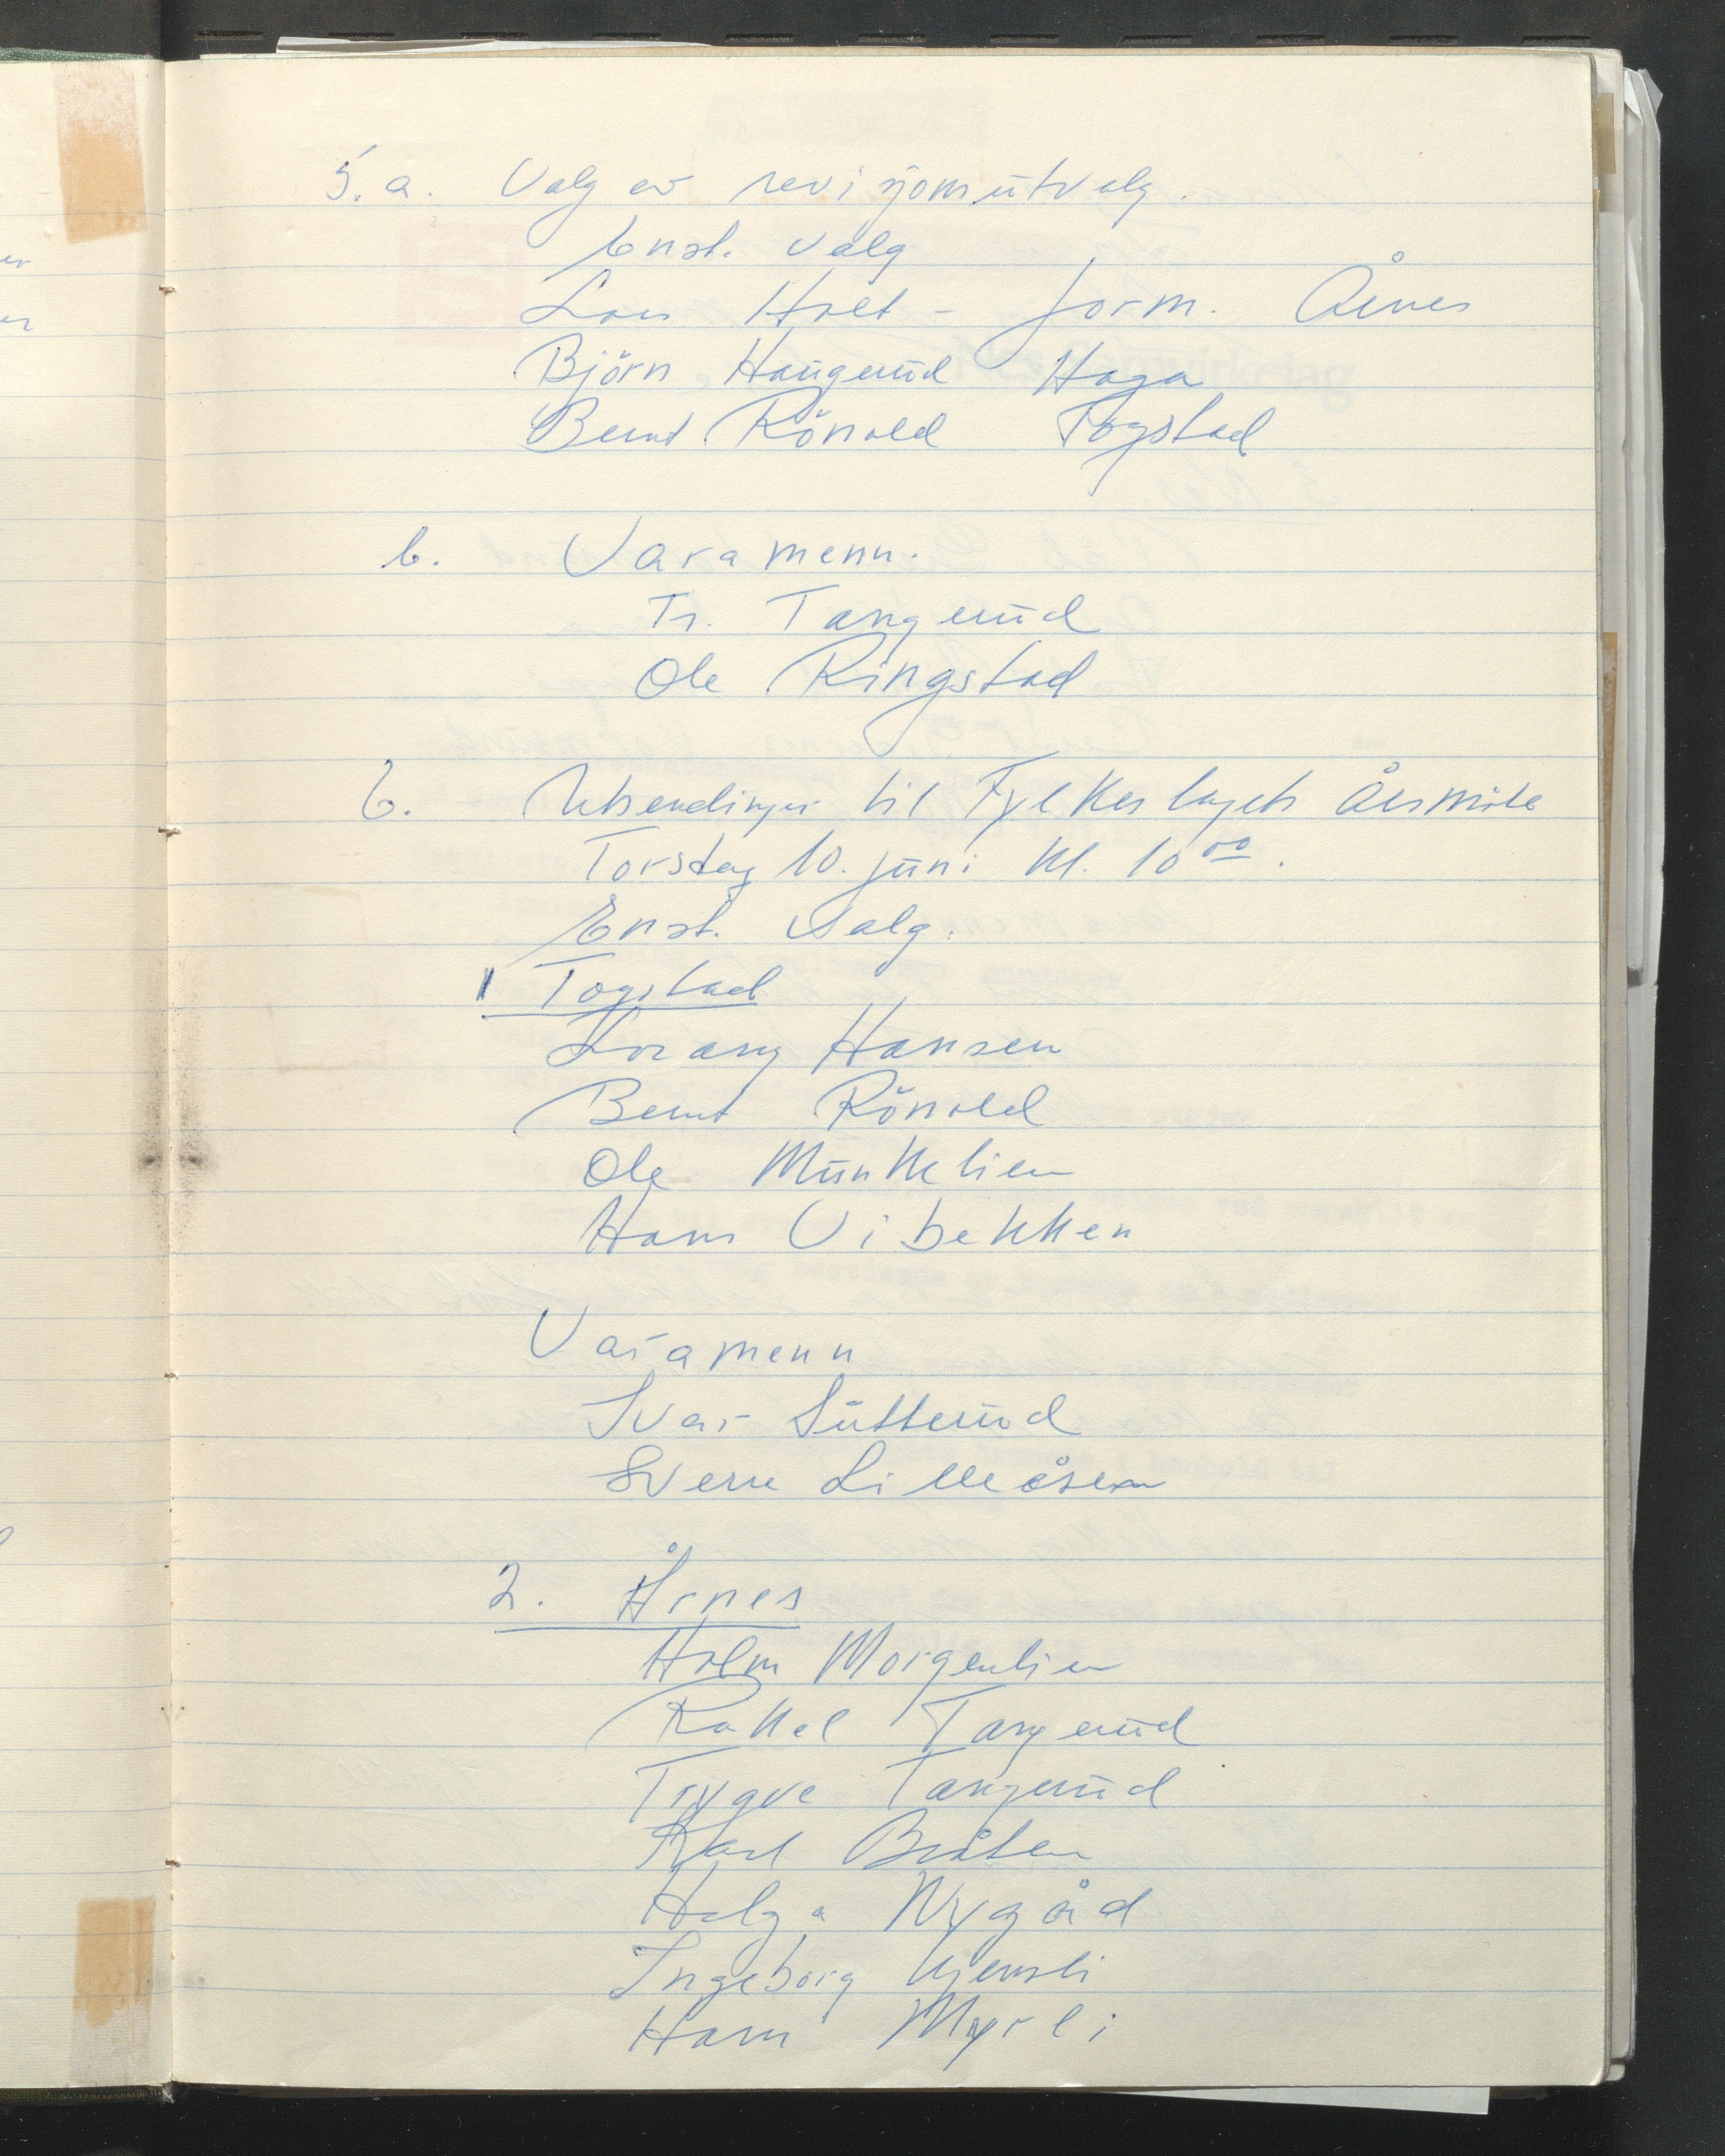 5. a. Valg av revisjonsutvalg.
Enst. valg
Lars Holt - form. Årnes
Björn Haugerud Haga
Bernt Rönold Togstad
b. Varamenn.
Tr. Tangerud
Ole Ringstad
6. Utsendinger til Fylkeslagets Årsmöte
Torsdag 10. juni kl. 10 00.
Enst. valg.
1 Togstad
Lorang Hansen
Bernt Rönold
Ole Munkelien
Hans Vibekken
Varamenn
Ivar Sutterud
Sverre Lilleåsen
2. Årnes
Holm Morgenlien
Rakel Tangerud
Trygve Tangerud
Karl Bråten
Helga Nygård
Ingeborg
Hans Myrli